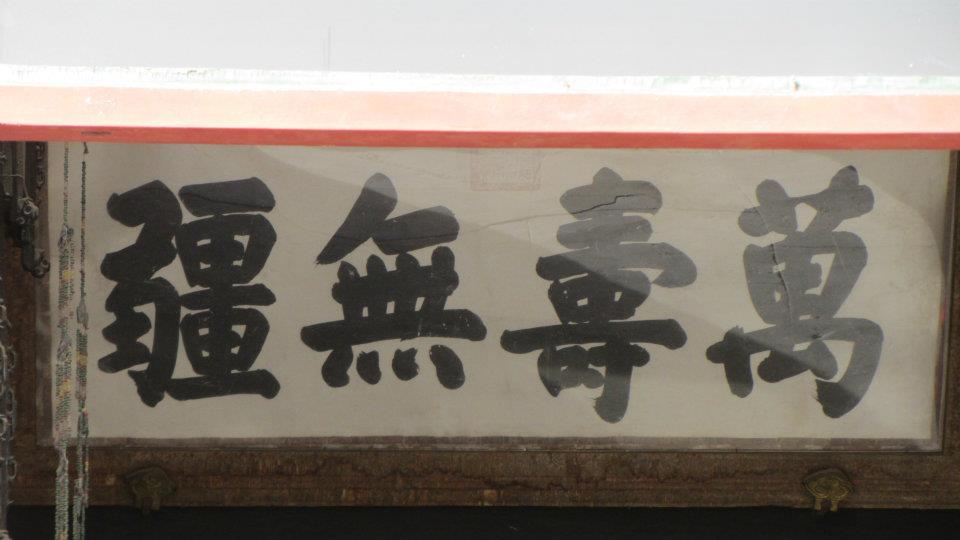 萬壽無疆